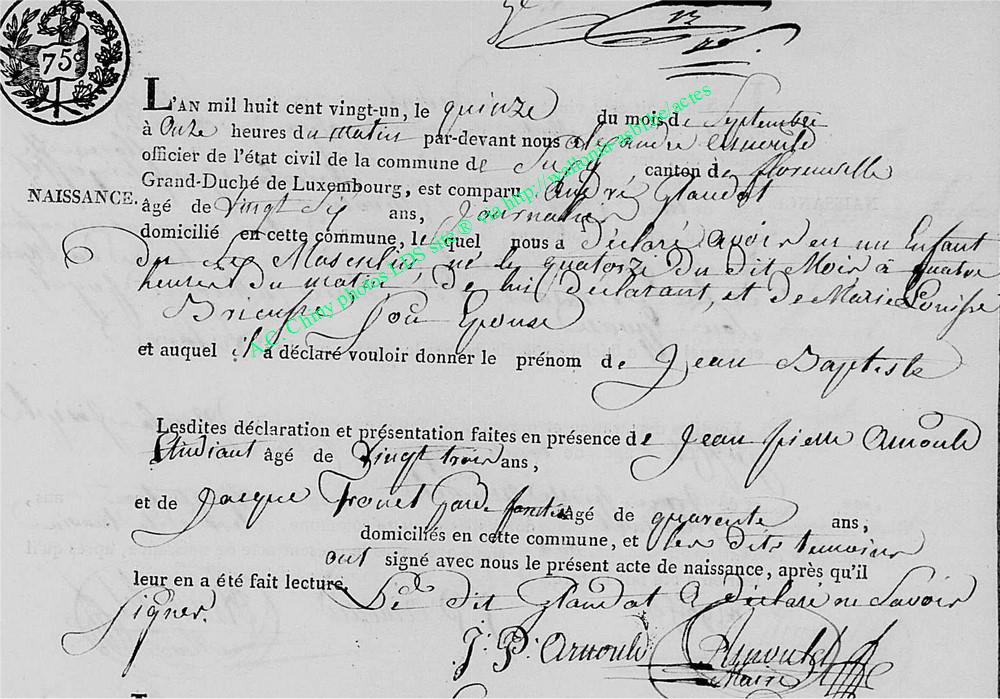 75 c
L'AN mil huit cent vingt-un, le quinze du mois de Septembre
à Onze heures du matin par-devant nous alexandre arnould
officier de l'état civil de la commune de Suxy canton de florenville
Grand-Duché de Luxembourg, est comparu André Glaudot
NAISSANCE.
âgé de vingt Six ans, Journalier
domicilié en cette commune, lequel nous a déclaré avoir eu un Enfant
du Sexe Masculin né le quatorze du dit Mois à quatre
heures du matin, de lui déclarant, et de Marie Louisse
Son Epouse
et auquel il a déclaré vouloir donner le prénom de Jean Baptiste
Lesdites déclaration et présentation faites en présence de Jean pierre Arnould
Etudiant âgé de Vingt trois ans,
et de Jacque Garde forestier âgé de quarente ans,
domiciliés en cette commune, et les dits temoins
ont signé avec nous le présent acte de naissance, après qu'il
leur en a été fait lecture. Le dit Glaudot a déclaré ne Savoir
Signer.
J. P. Arnould Arnould
Maire
A.C. Chiny photos LDS site ® via http://wallonia-asbl.be/actes